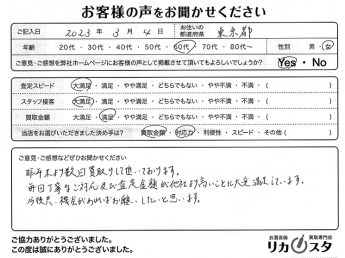 お客様の声をお聞かせください
ご記入日 2023年 3月 4日 お住いの都道府県 東京都
年齢 20代・30代・40代・50代・60代・70代・80代〜 性別 男・女
ご意見・ご感想を弊社ホームページにお客様の声として掲載させて頂いてもよろしいでしょうか? Yes・No
査定スピード 大満足・満足・やや満足・どちらでもない・やや不満・不満・( )
スタッフ接客 大満足・満足・やや満足・どちらでもない・やや不満・不満・( )
買取金額 大満足・満足・やや満足・どちらでもない・やや不満・不満・( )
当店をお選びいただきました決め手は? 買取金額・対応力・利便性・スピード・その他( )
ご意見・ご感想などぜひお聞かせください
昨年末より数回買取りして頂いております。
毎回丁寧なご対応及び査定金額が他社より高いことに大変満足しています。
今後共、機会があればお願いしたいと思います。
ご協力ありがとうございました。
この度は誠にありがとうございました。
お酒高価 買取専門店
リカスタ